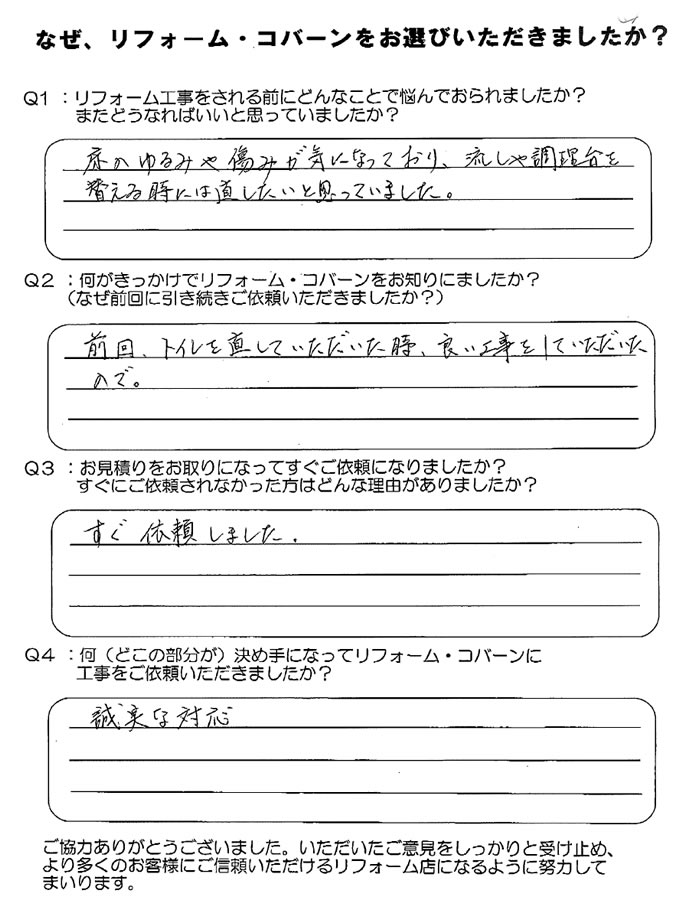 なぜ、リフォーム・コバーンをお選びいただきましたか？
Q1：リフォーム工事をされる前にどんなことで悩んでおられましたか？
またどうなればいいと思っていましたか？
床のゆるみや傷みが気になっており、流しや調理台を
替える時には直したいと思っていました。
Q2：何がきっかけでリフォーム・コバーンをお知りにましたか？
（なぜ前回に引き続きご依頼いただきましたか？）
前回、トイレを直していただいた時、良い工事をしていただいた
ので。
Q3：お見積りをお取りになってすぐご依頼になりましたか？
すぐにご依頼されなかった方はどんな理由がありましたか？
すぐ依頼しました.
Q4：何（どこの部分が）決め手になってリフォーム・コバーンに
工事をご依頼いただきましたか？
誠実な対応
ご協力ありがとうございました。いただいたご意見をしっかりと受け止め、
より多くのお客様にご信頼いただけるリフォーム店になるように努力して
まいります。